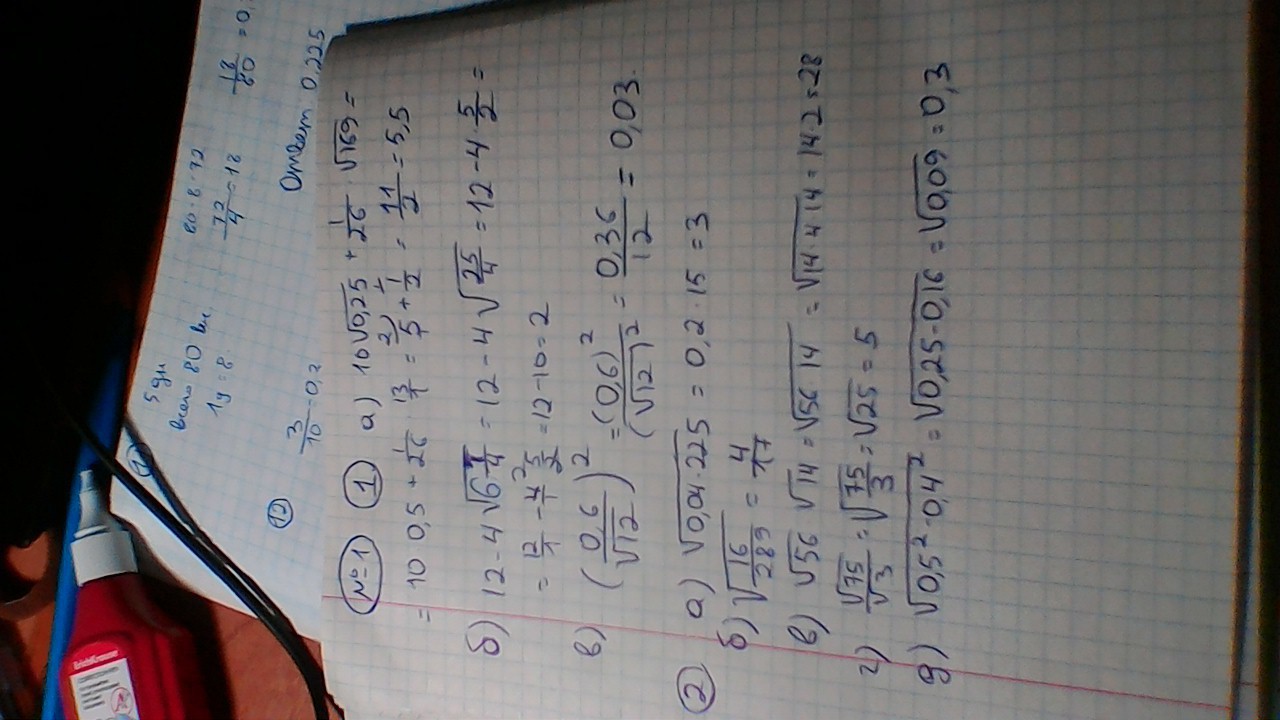 5 дн
всего 80 вк
1у = 8
80-8=72
72/4=18
18/80=0,
12
3/10=0,3
Ответ 0,225
№1 ① а) 10√0,25 + 1/26 · √169 =
= 10 0,5 + 1/26 · 13/1 = 5/1 + 1/2 = 11/2 = 5,5
б) 12 - 4√6 1/4 = 12 - 4√25/4 = 12 - 4 · 5/2 =
= 12/1 - 4/1 · 5/2 = 12-10=2
в) (0,6/√12)² = (0,6)²/(√12)² = 0,36/12 = 0,03.
② а) √0,04·225 = 0,2 · 15 = 3
б) √16/289 = 4/17
в) √56 √14 = √56 14 = √14·4 14 = 14·2=28
г) √75/√3 = √75/3 = √25 = 5
д) √0,5²-0,4² = √0,25-0,16 = √0,09 = 0,3